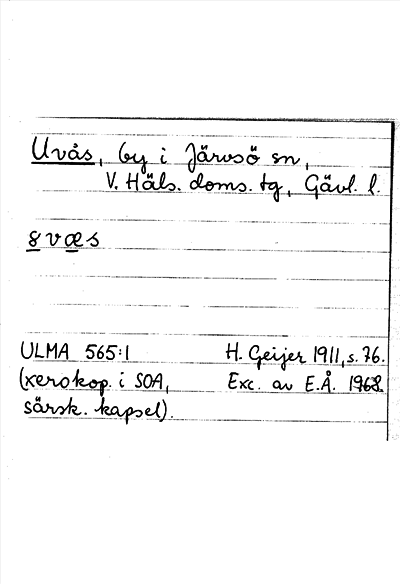 Uvås, by i Järvsö sn,
V. Häls. doms. tg, Gävl. l.
8 v æ s
ULMA 565:1 H. Geijer 1911, s. 76.
(xerokop. i SOA, Exc. av E.Å. 1962.
särsk. kapsel).